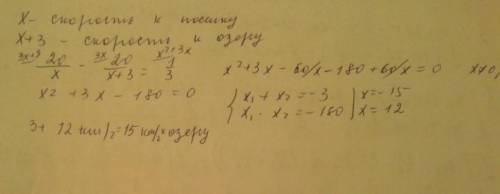 X - скорость к поселку
X+3 - скорость к озеру
3x+9 20/x - 3x 20/x+3 = x²+3x 1/3
x²+3x-60x-180+60x=0 x≠0,
x² +3x -180 = 0
{x₁+x₂=-3 | x=-15
x₁·x₂=-180 | x=12
3+12 км/ч=15 км/ч озеру